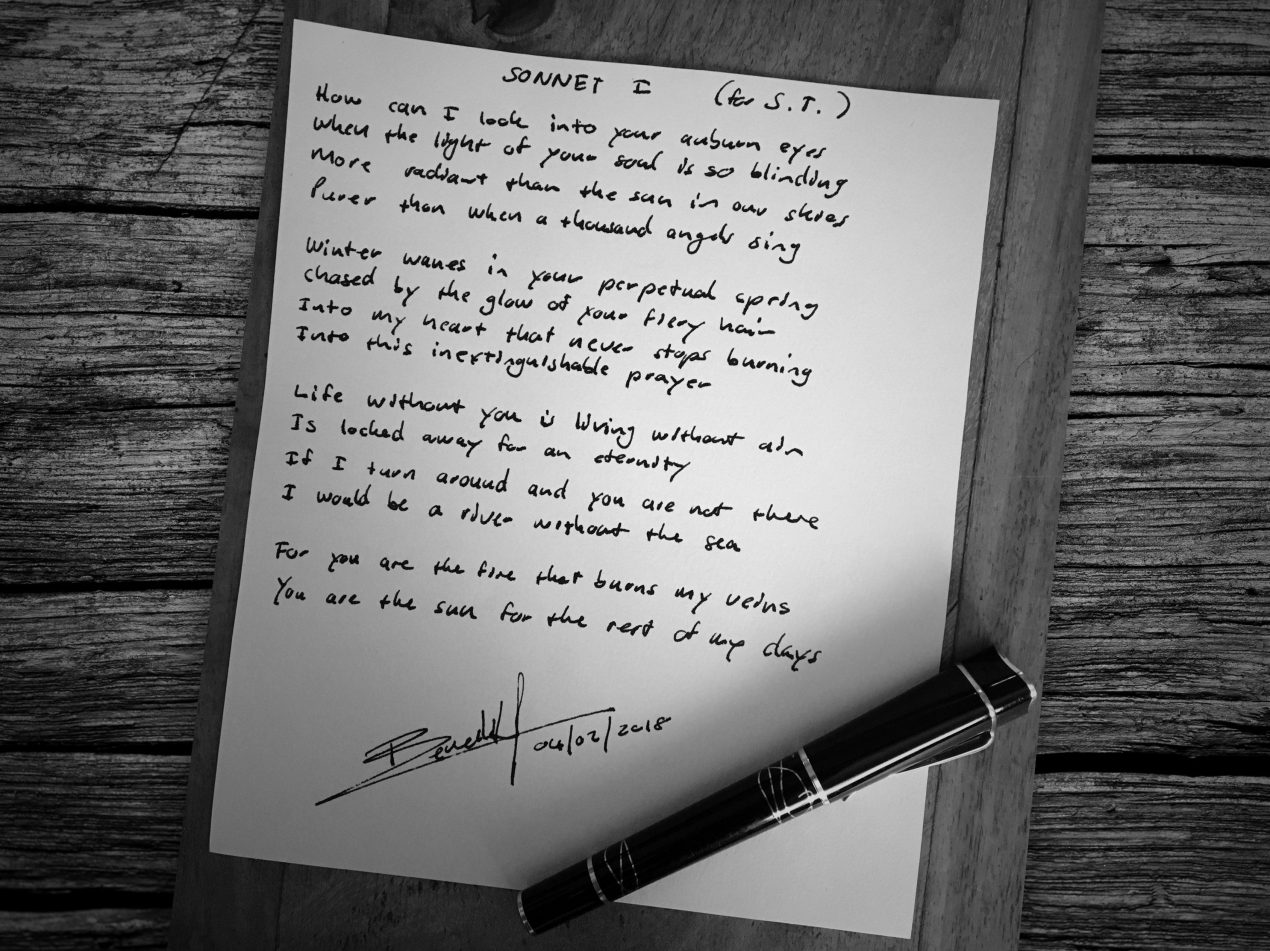 SONNET I (for S. T.)
How can I look into your auburn eyes
When the light of your soul is so blinding
More radiant than the sun in our skies
Purer than when a thousand angels sing
Winter wanes in your perpetual spring
Chased by the glow of your fiery hair
Into my heart that never stops burning
Into this inextinguishable prayer
Life without you is living without air
Is locked away for an eternity
If I turn around and you are not there
I would be a river without the sea
For you are the fire that burns my veins
You are the sun for the rest of my days
04/02/2018